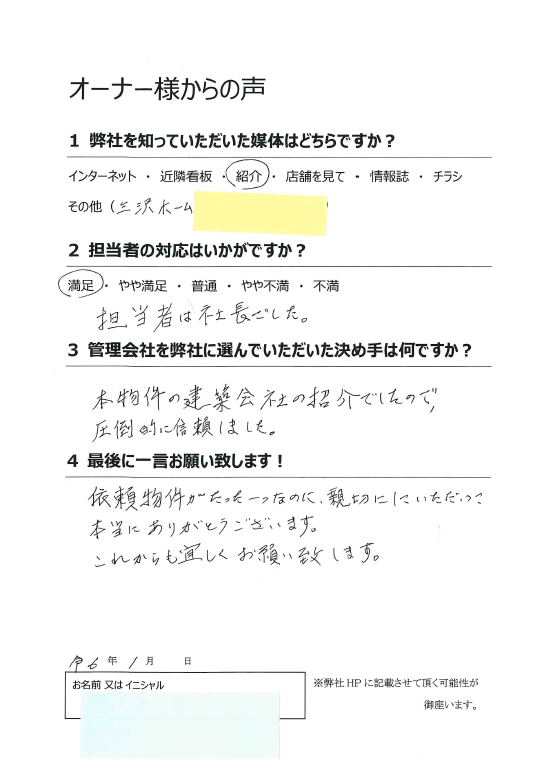 オーナー様からの声
1 弊社を知っていただいた媒体はどちらですか？
インターネット ・ 近隣看板 ・ 紹介 ・ 店舗を見て ・ 情報誌 ・ チラシ
その他（三沢ホーム
2 担当者の対応はいかがですか？
満足 ・ やや満足 ・ 普通 ・ やや不満 ・ 不満
担当者は社長でした。
3 管理会社を弊社に選んでいただいた決め手は何ですか？
本物件の建築会社の紹介でしたので、
圧倒的に信頼しました。
4 最後に一言お願い致します！
依頼物件がたった一つなのに、親切にしていただいて
本当にありがとうございます。
これからも宜しくお願い致します。
令6年1月 日
お名前 又は イニシャル
※弊社HPに記載させて頂く可能性が
御座います。